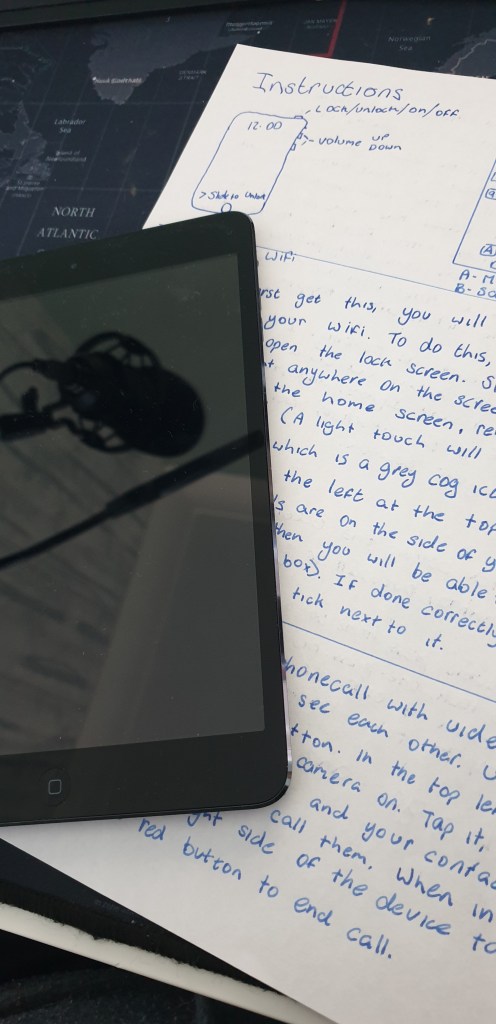 NORWEGIAN
Sea
Labrador
Sea
NORTH
ATLANTIC
Instructions
Lock/unlock/on/off
12:00
volume UP
DOWN
> Slide to Unlock
A
A - M
B - So
wifi
rst get this, you will
your wifi. To do this,
open the lock screen. S
t anywhere on the scree
the home screen, re
(A light touch will
which is a grey cog ico
the left at the top
ls are on the side of y
hen you will be able
box). If done correctly
tick next to it.
honecall with vide
see each other. U
tton. In the top le
camera on. Tap it,
and your contac
call them. When in
ght side of the device to
red button to end call.